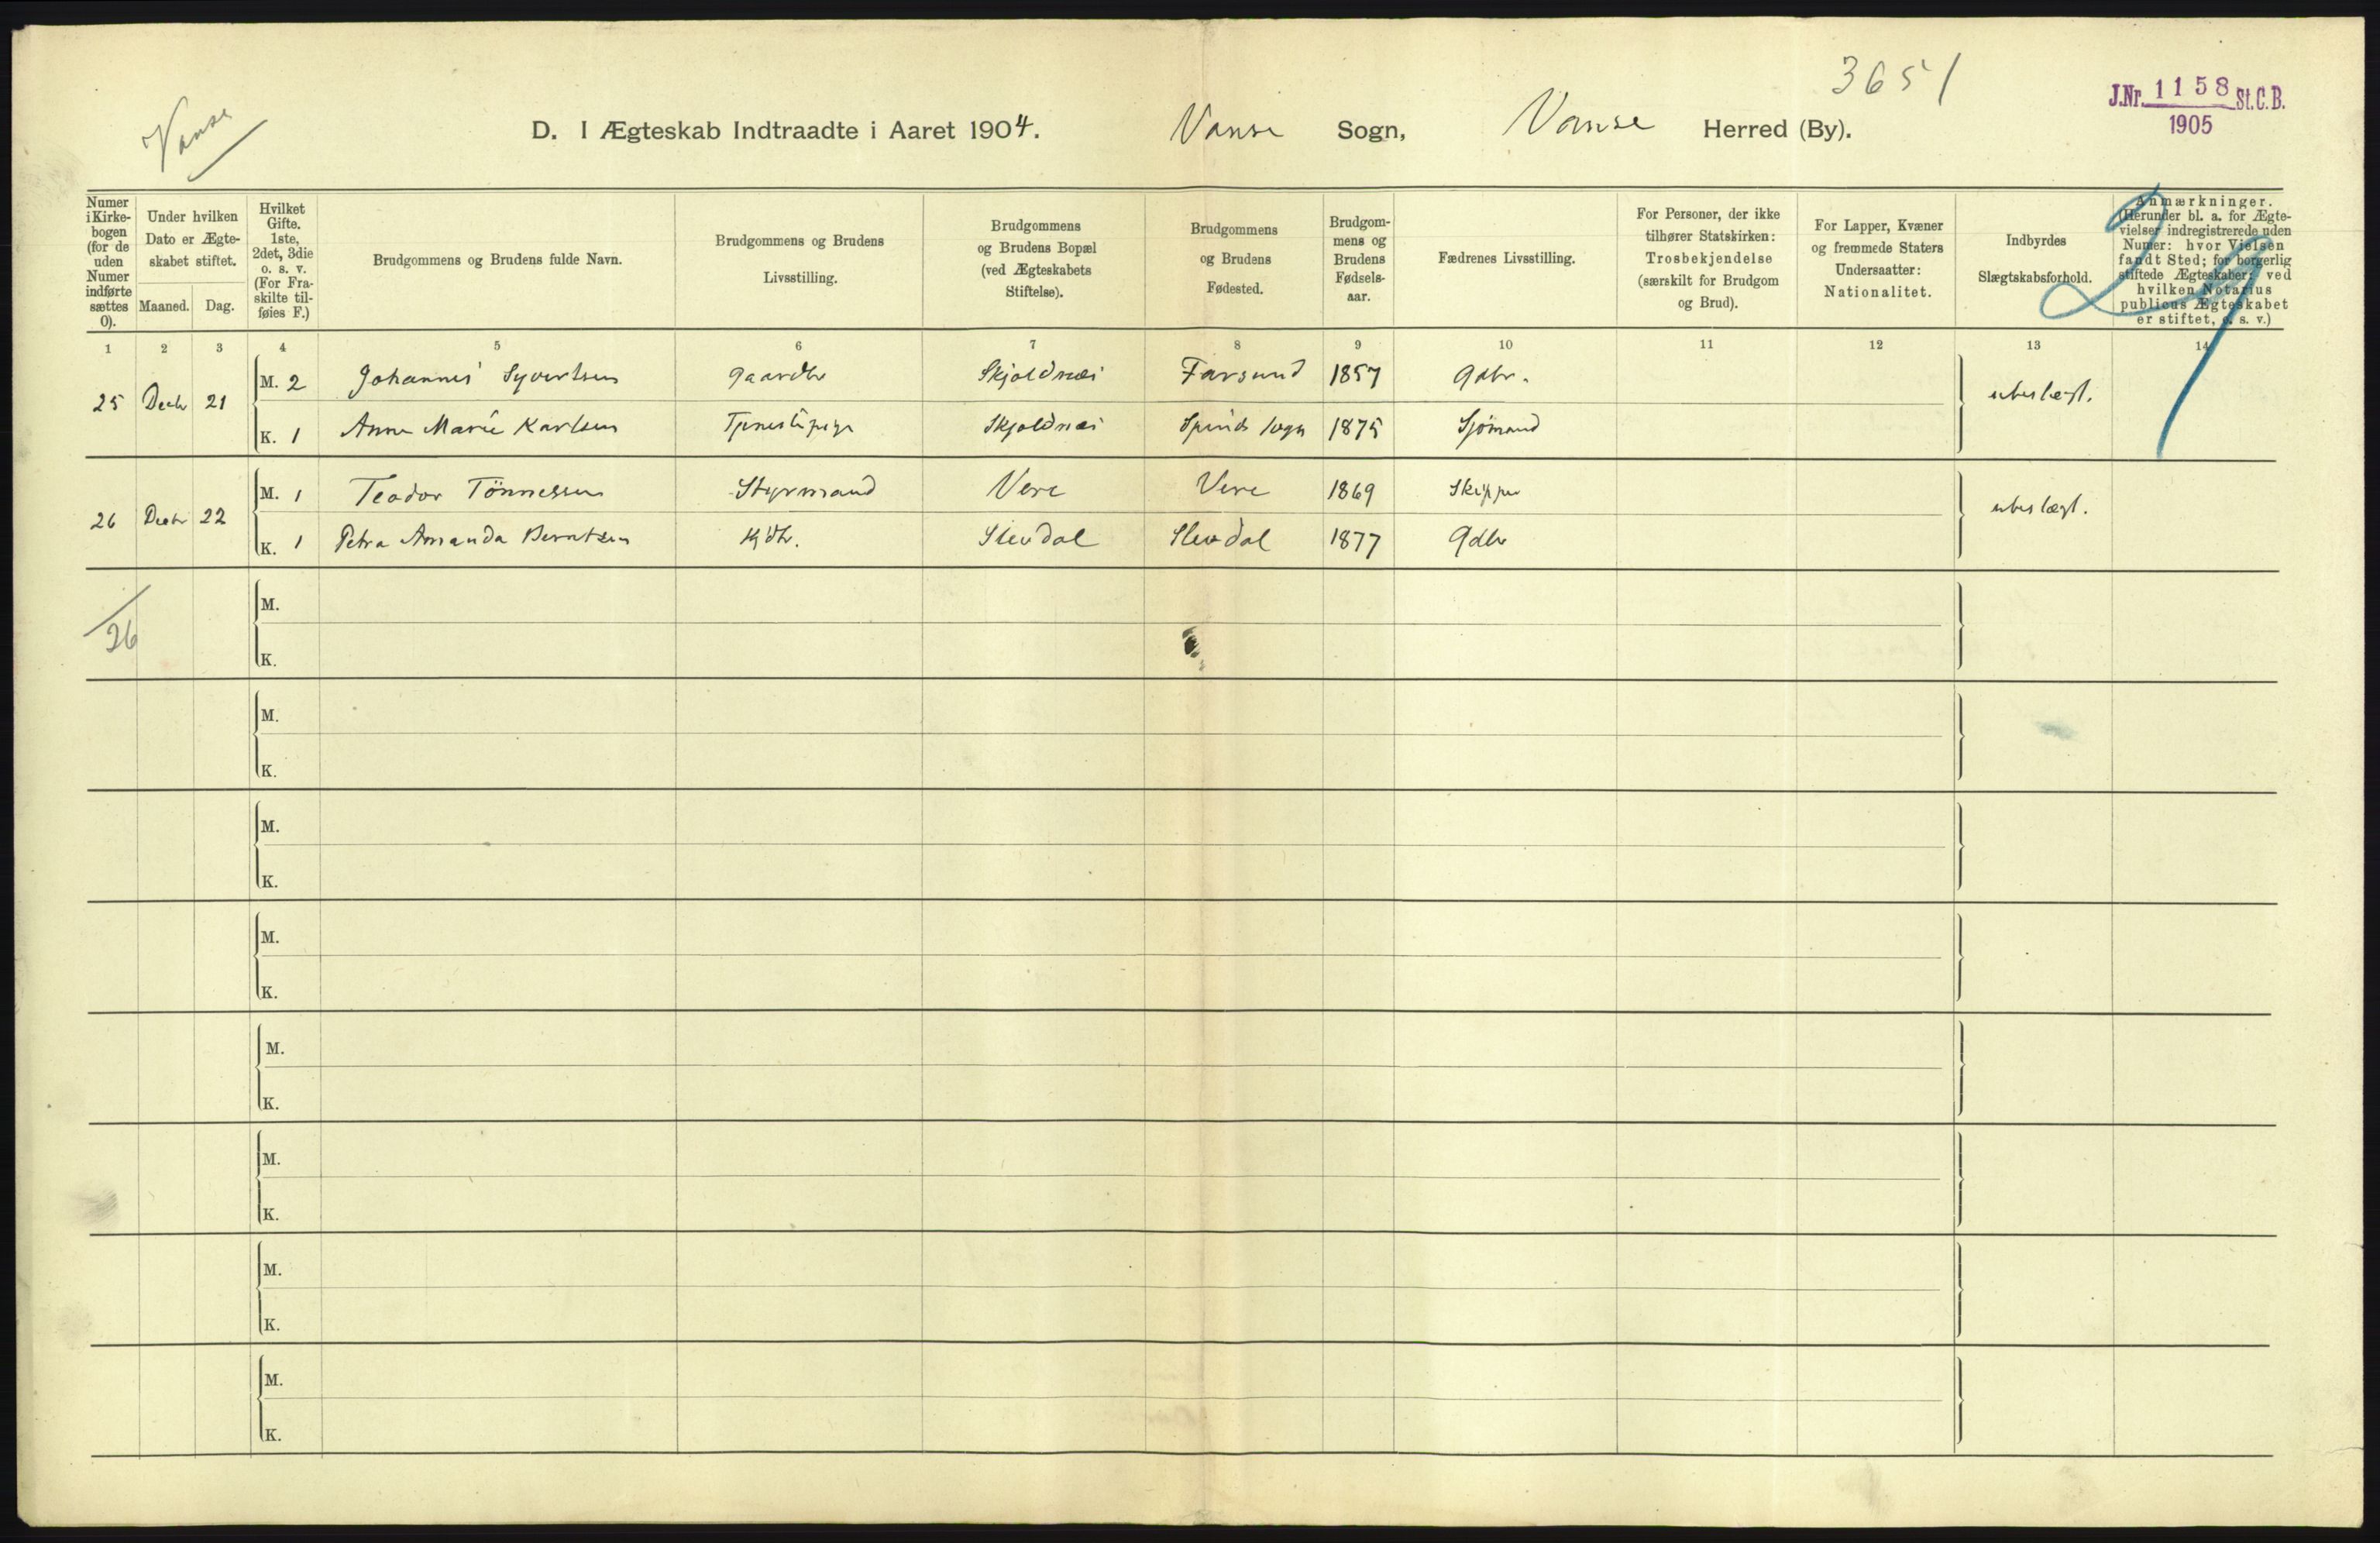 3651
J.Nr. 1158 St.C.B.
1905
Vanse
D. I Ægteskab Indtraadte i Aaret 1904. Vanse Sogn, Vanse Herred (By).
Numer
i Kirke-
bogen
(for de
uden
Numer
indførte
sættes
0).
Under hvilken
Dato er Ægte-
skabet stiftet.
Maaned. Dag.
Hvilket
Gifte.
1ste,
2det, 3die
o. s. v.
(For Fra-
skilte til-
føies F.)
Brudgommens og Brudens fulde Navn.
Brudgommens og Brudens
Livsstilling.
Brudgommens
og Brudens Bopæl
(ved Ægteskabets
Stiftelse).
Brudgommens
og Brudens
Fødested.
Brudgom-
mens og
Brudens
Fødsels-
aar.
Fædrenes Livsstilling.
For Personer, der ikke
tilhører Statskirken:
Trosbekjendelse
(særskilt for Brudgom
og Brud).
For Lapper, Kvæner
og fremmede Staters
Undersaatter:
Nationalitet.
Indbyrdes
Slægtskabsforhold.
Anmærkninger.
(Herunder bl. a. for Ægte-
vielser indregistrerede uden
Numer: hvor Vielsen
fandt Sted; for borgerlig
stiftede Ægteskaber: ved
hvilken Notarius
publicus Ægteskabet
er stiftet, o. s. v.)
29
1 2 3 4 5 6 7 8 9 10 11 12 13 14
M. 2 Johannes Syvertsen Gaardbr Skjoldnæs Farsund 1857 Gdbr.
25 Decbr 21 ubeslægt.
K. 1 Anne Marie Karlsen Tjenestepige Skjoldnæs Spinds sogn 1875 Sjømand
M. 1 Teodor Tönnessen Styrmand Vere Vere 1869 Skipper
26 Decbr 22 ubeslægt.
K. 1 Petra Amanda Berntsen Slevdal Slevdal 1877 Gdbr
M.
26
K.
M.
K.
M.
K.
M.
K.
M.
K.
M.
K.
M.
K.
M.
K.